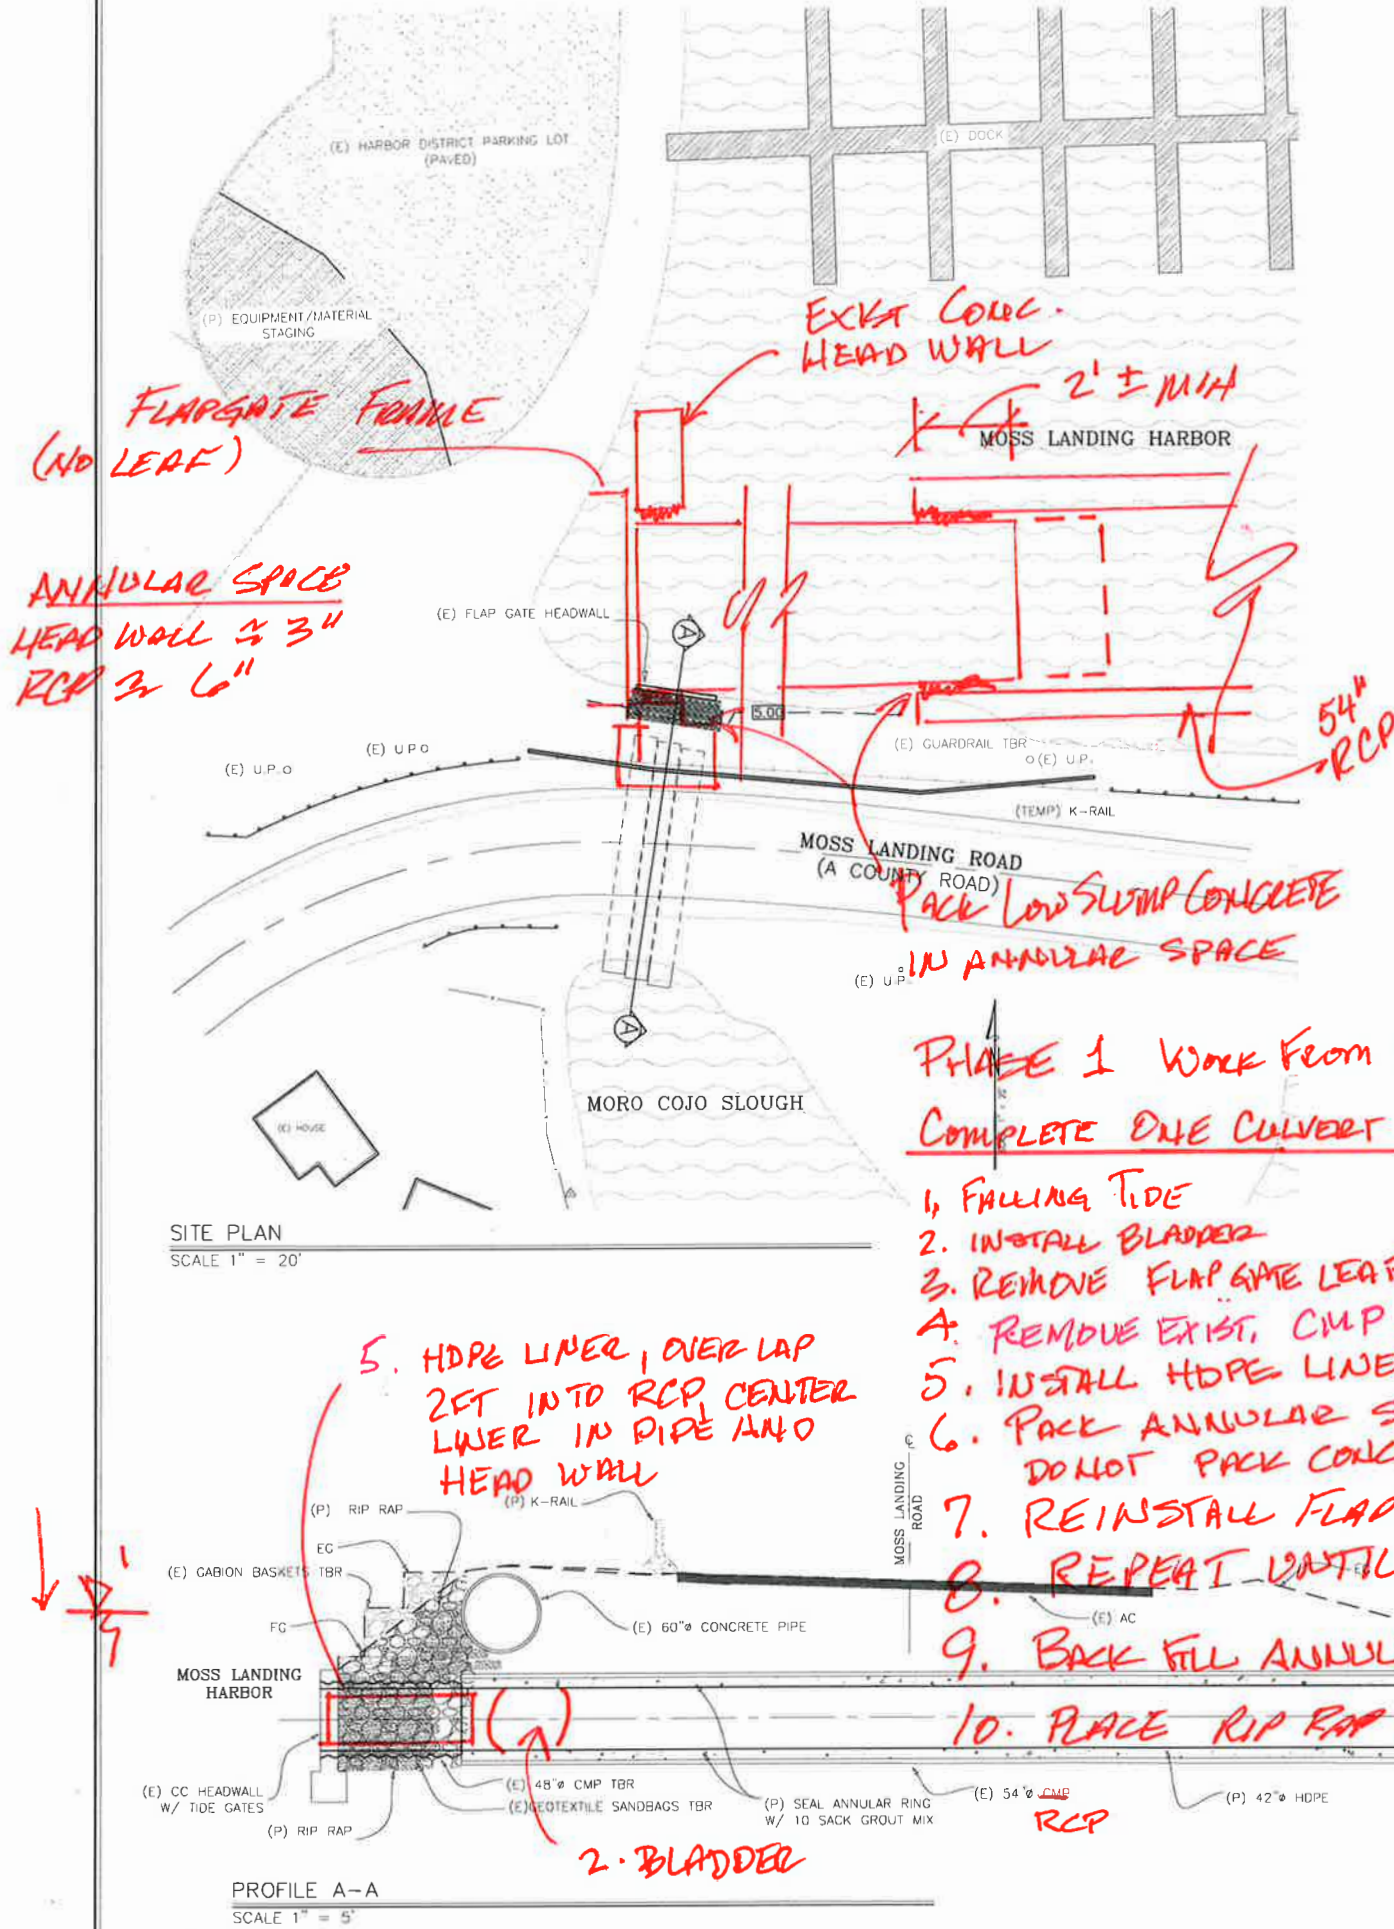 (E) HARBOR DISTRICT PARKING LOT
(PAVED)
(E) DOCK
(P) EQUIPMENT/MATERIAL
STAGING
EXIST CONC.
HEAD WALL
2' ± MIN
MOSS LANDING HARBOR
FLAPGATE FRAME
(NO LEAF)
ANNULAR SPACE
HEAD WALL ≈ 3"
RCP ≈ 6"
(E) FLAP GATE HEADWALL
A
5.00
(E) GUARDRAIL TBR
(E) U.P.
(E) U.P.
(E) U.P.
54"
RCP
(TEMP) K-RAIL
MOSS LANDING ROAD
(A COUNTY ROAD)
PACK LOW SLUMP CONCRETE
IN ANNULAR SPACE
(E) U.P.
A
MORO COJO SLOUGH
(E) HOUSE
PHASE 1 WORK FROM
COMPLETE ONE CULVERT
1. FALLING TIDE
2. INSTALL BLADDER
3. REMOVE FLAP GATE LEAF
4. REMOVE EXIST. CMP
5. INSTALL HDPE LINE
6. PACK ANNULAR S
DO NOT PACK CONC
7. REINSTALL FLAP
8. REPEAT UNTIL
9. BACK FILL ANNUL
10. PLACE RIP RAP
SITE PLAN
SCALE 1" = 20'
5. HDPE LINER, OVER LAP
2FT INTO RCP, CENTER
LINER IN PIPE AND
HEAD WALL
(P) RIP RAP
(P) K-RAIL
MOSS LANDING
ROAD
EG
(E) GABION BASKETS TBR
FG
(E) 60"ø CONCRETE PIPE
(E) AC
EG
MOSS LANDING
HARBOR
(E) CC HEADWALL
W/ TIDE GATES
(P) RIP RAP
(E) 48"ø CMP TBR
(E)GEOTEXTILE SANDBAGS TBR
(P) SEAL ANNULAR RING
W/ 10 SACK GROUT MIX
(E) 54"ø CMP
RCP
(P) 42"ø HDPE
2. BLADDER
PROFILE A-A
SCALE 1" = 5'